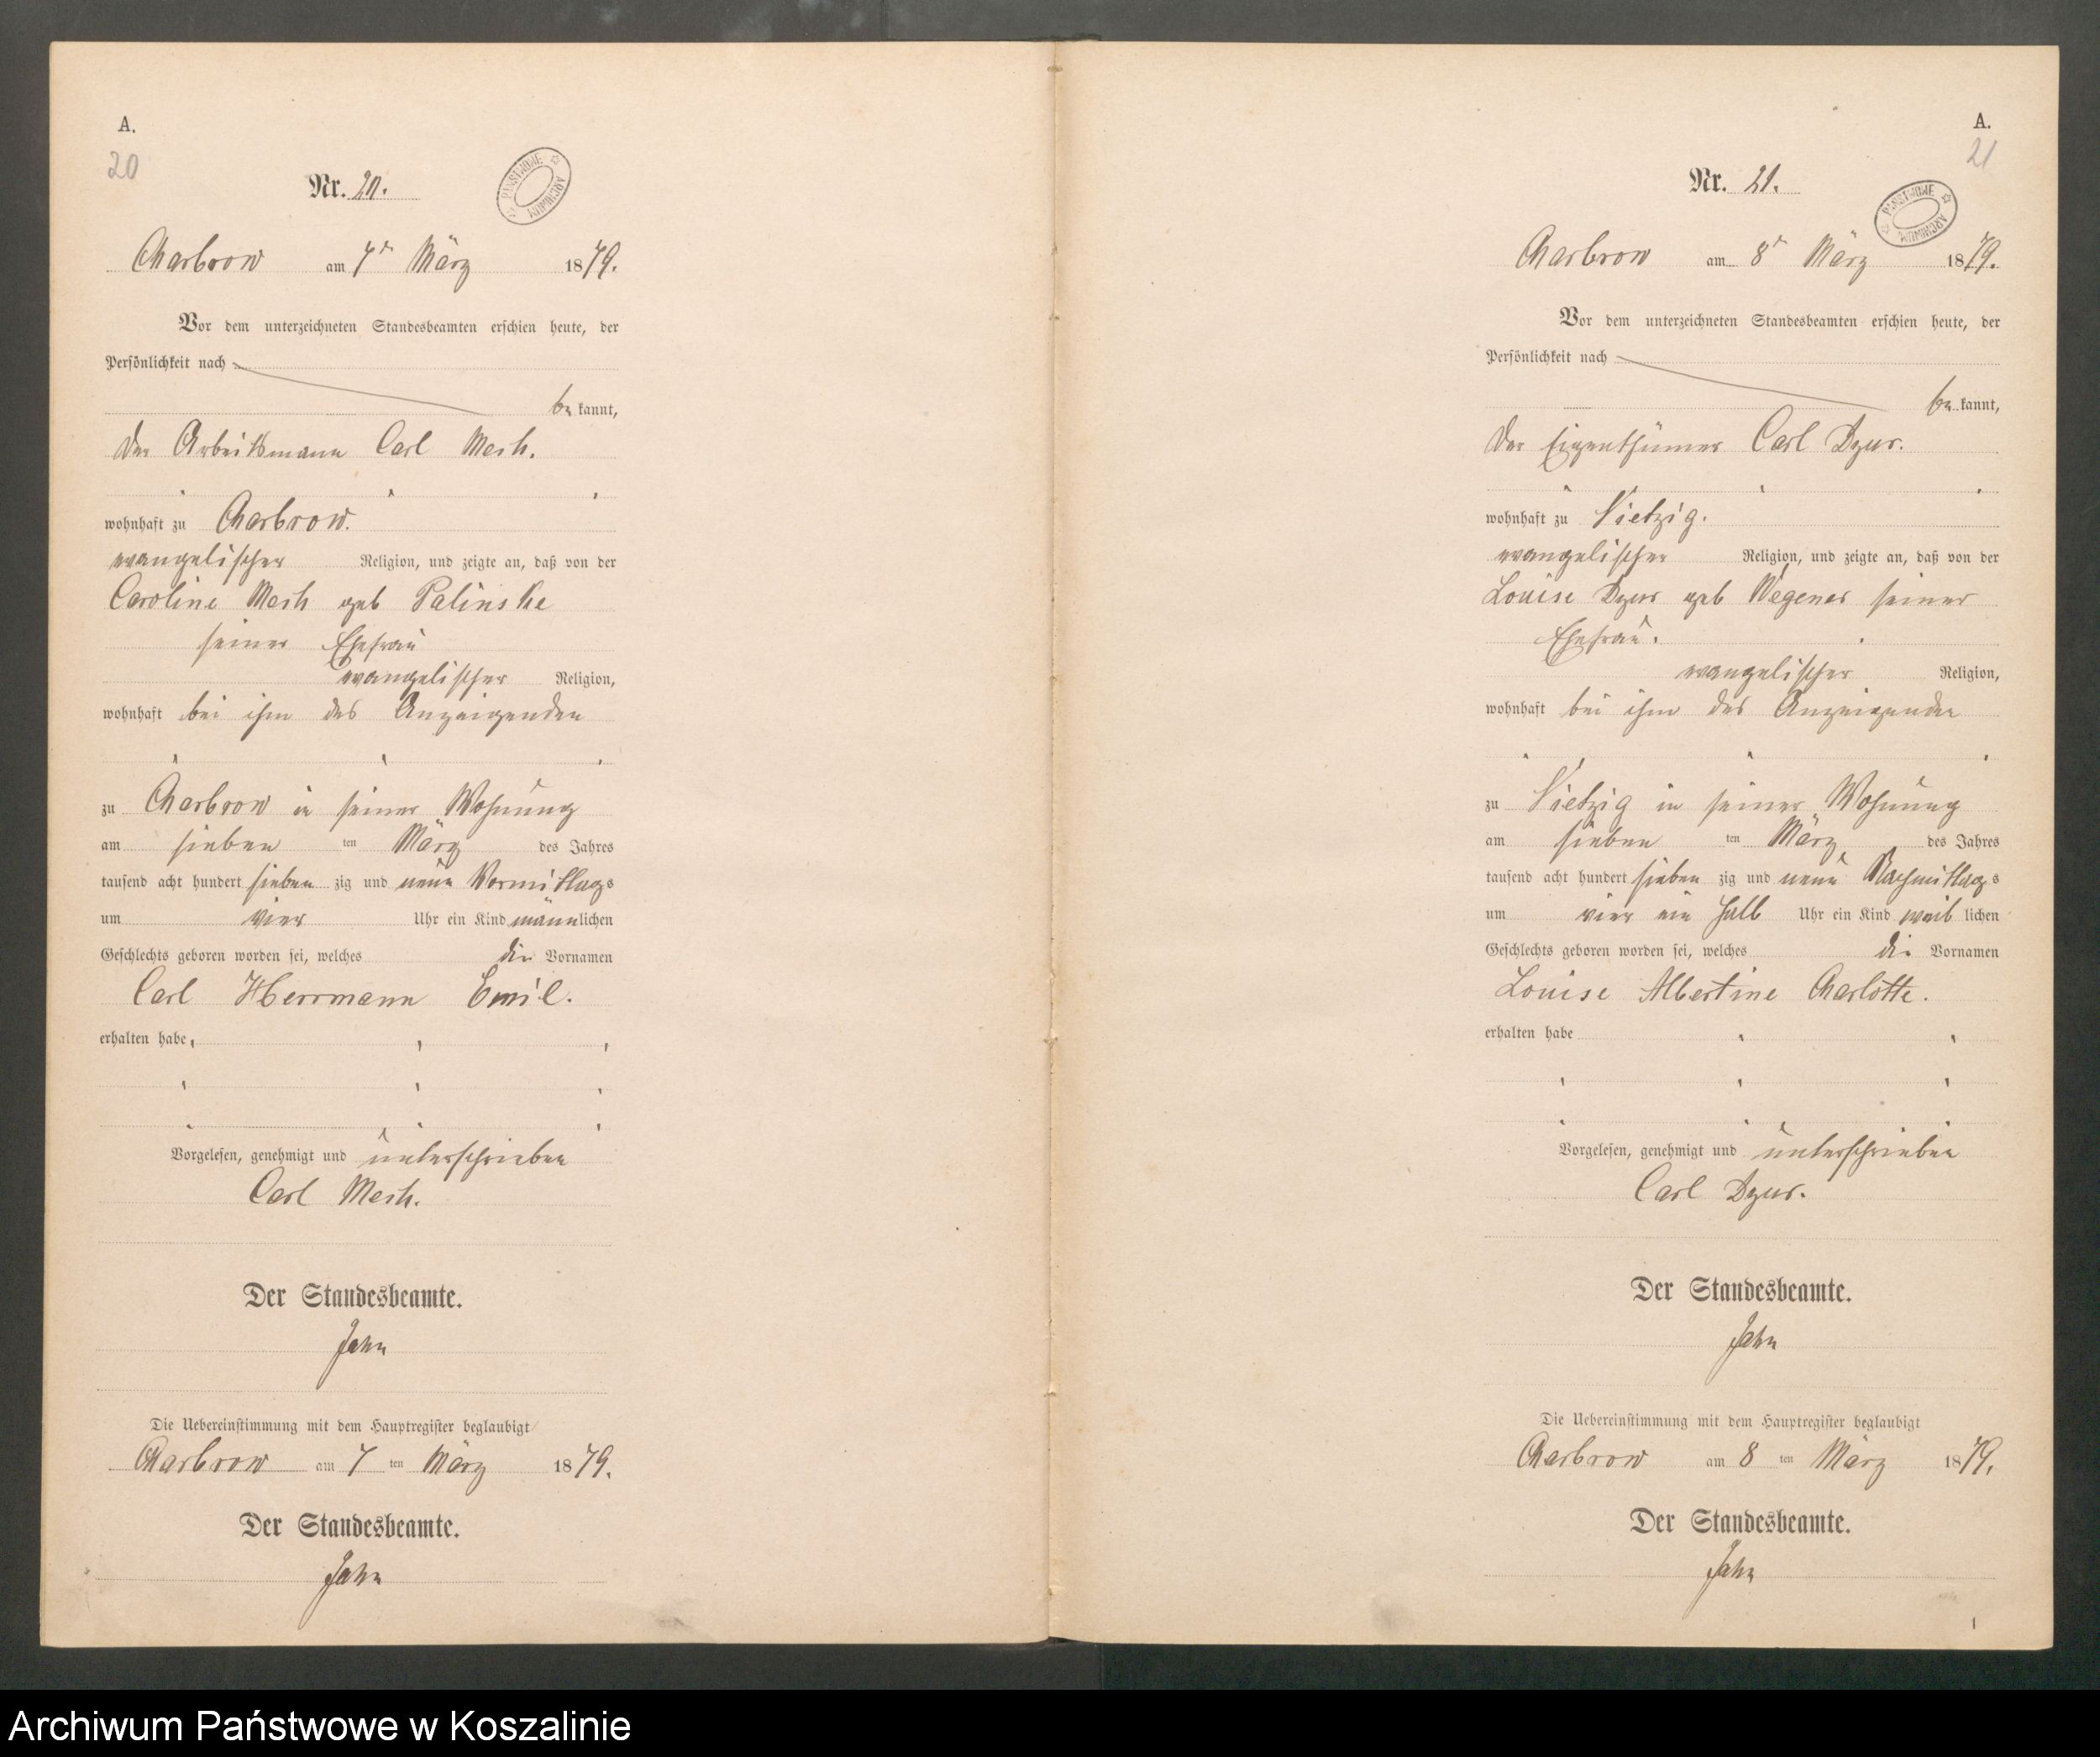 A.
20
Nr. 20.
PAŃSTWOWE ARCHIWUM
Charbrow am 7n März 1879.
Vor dem unterzeichneten Standesbeamten erschien heute, der
Persönlichkeit nach
be kannt,
der Arbeitsmann Carl
wohnhaft zu Charbrow.
evangelischer Religion, und zeigte an, daß von der
Caroline geb Palinske
seiner Ehefrau
evangelischer Religion,
wohnhaft bei ihm des Anzeigenden
zu Charbrow in seiner Wohnung
am sieben ten März des Jahres
tausend acht hundert sieben zig und neun Vormittags
um vier Uhr ein Kind männlichen
Geschlechts geboren worden sei, welches die Vornamen
Carl Herrmann Emil.
erhalten habe
Vorgelesen, genehmigt und unterschrieben
Carl
Der Standesbeamte.
Jahn
Die Uebereinstimmung mit dem Hauptregister beglaubigt
Charbrow am 7 ten März 1879.
Der Standesbeamte.
Jahn
A.
21
Nr. 21.
PAŃSTWOWE ARCHIWUM
Charbrow am 8n März 1879.
Vor dem unterzeichneten Standesbeamten erschien heute, der
Persönlichkeit nach
be kannt,
der Eigenthümer Carl Dzur.
wohnhaft zu Vietzig.
evangelischer Religion, und zeigte an, daß von der
Louise Dzur geb Wegener seiner
Ehefrau.
evangelischer Religion,
wohnhaft bei ihm des Anzeigenden
zu Vietzig in seiner Wohnung
am sieben ten März des Jahres
tausend acht hundert sieben zig und neun Nachmittags
um vier ein halb Uhr ein Kind weib lichen
Geschlechts geboren worden sei, welches die Vornamen
Louise Albertine Charlotte.
erhalten habe
Vorgelesen, genehmigt und unterschrieben
Carl Dzur.
Der Standesbeamte.
Jahn
Die Uebereinstimmung mit dem Hauptregister beglaubigt
Charbrow am 8 ten März 1879.
Der Standesbeamte.
Jahn
Archiwum Państwowe w Koszalinie